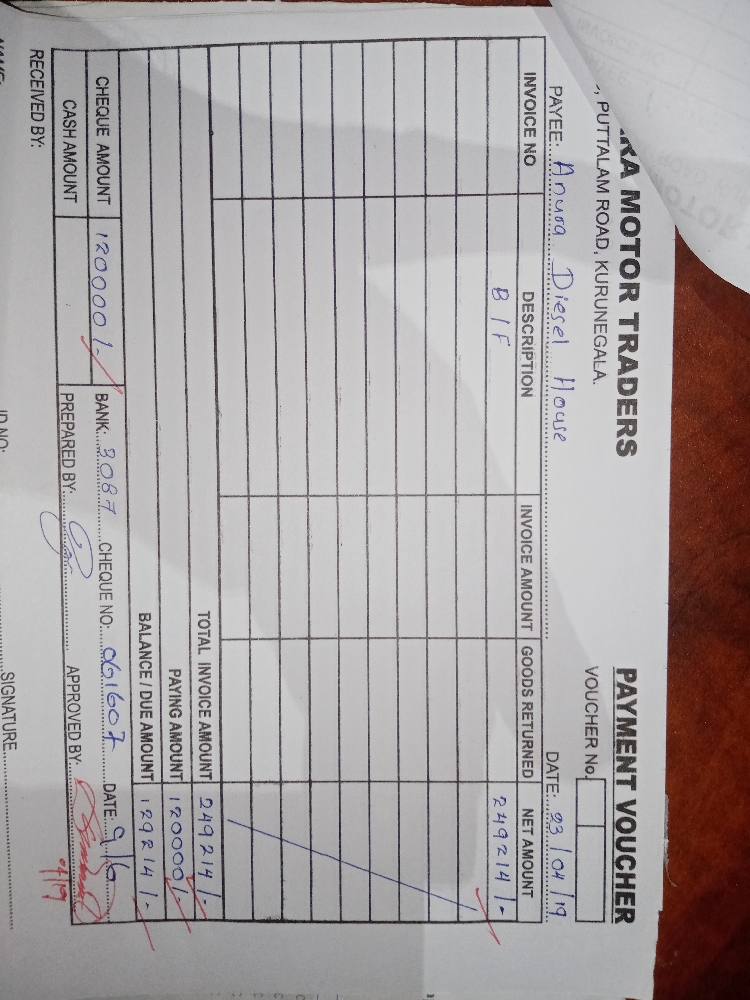 RA MOTOR TRADERS
PAYMENT VOUCHER
, PUTTALAM ROAD, KURUNEGALA.
VOUCHER No.
PAYEE: Anura Diesel House DATE: 23/04/19
INVOICE NO DESCRIPTION INVOICE AMOUNT GOODS RETURNED NET AMOUNT
B/F 249214/-
TOTAL INVOICE AMOUNT 249214/-
PAYING AMOUNT 120000/-
BALANCE / DUE AMOUNT 129214/-
CHEQUE AMOUNT 120000/- BANK: 3087 CHEQUE NO: 061607 DATE: 9/6
CASH AMOUNT PREPARED BY: APPROVED BY:
RECEIVED BY:
NAME: ID NO: SIGNATURE